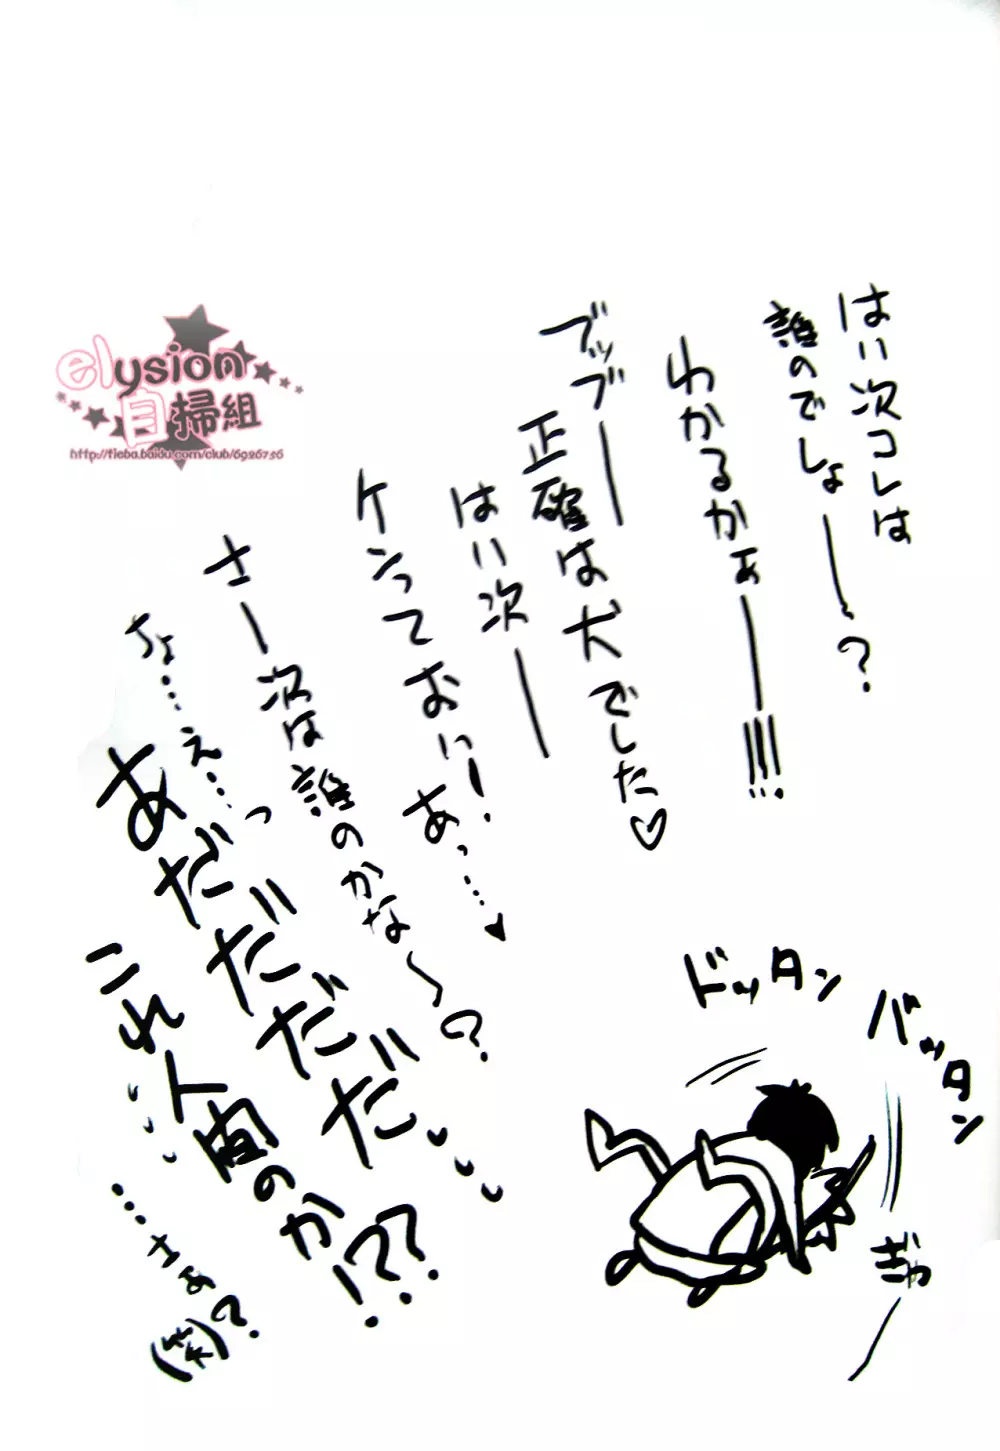 はい次コレは
誰のでしょーー〜？
わかるかぁーー!!!!
ブッブーー
正確は犬でした♡
はい次ーー
ケンっておい！
あっ…♥
さー次は誰のかな〜？
ちょ…え…っ
あだだだだだ
これ人間のか!???
…さぁ(笑)？
ドッタン
バッタン
ぎゃー
elysion
目掃組
http://tieba.baidu.com/club/6926756